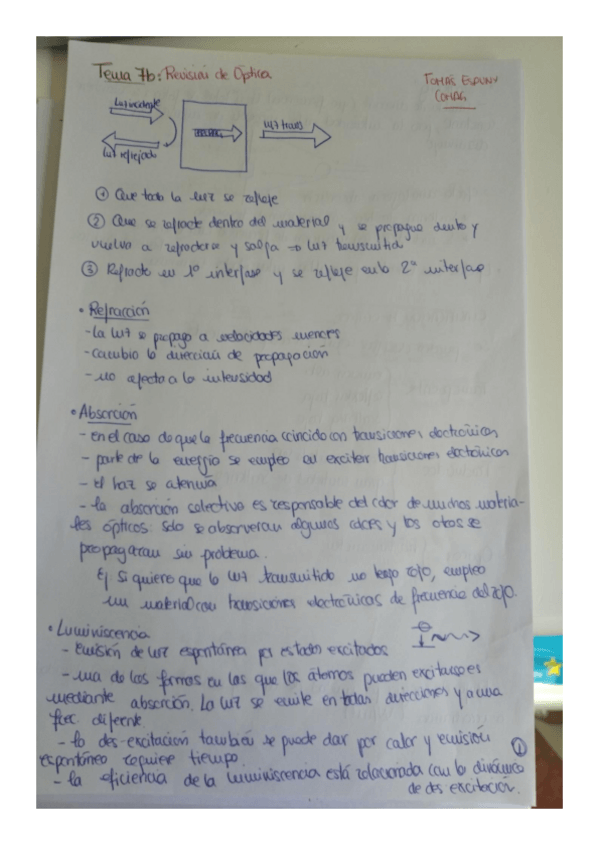 Tema 7b: Revisión de Óptica
TOMÁS
luz incidente
luz reflejada
luz trans
① Que toda la luz se refleje
② Que se refracte dentro del material y se propague dentro y
vuelva a refractarse y salga → luz transmitida
③ Refracte en 1ª interfase y se refleje en la 2ª interfase
• Refracción
- La luz se propaga a velocidades menores
- cambia la dirección de propagación
- no afecta a la intensidad
• Absorción
- en el caso de que la frecuencia coincida con transiciones electrónicas
- parte de la energía se emplea en excitar transiciones electrónicas
- El haz se atenúa
- la absorción selectiva es responsable del color de muchos materia-
les ópticos: solo se observarán algunos colores y los otros se
propagarán sin problema.
Ej si quiero que la luz transmitida no tenga rojo, empleo
un material con transiciones electrónicas de frecuencia del rojo.
• Luminiscencia
- Emisión de luz espontánea por estados excitados
- una de las formas en las que los átomos pueden excitarse es
mediante absorción. La luz se emite en todas direcciones y a una
frec diferente.
- la des-excitación también se puede dar por calor y emisión
espontánea requiere tiempo.
①
- la eficiencia de la luminiscencia está relacionada con la dinámica
de des excitación.